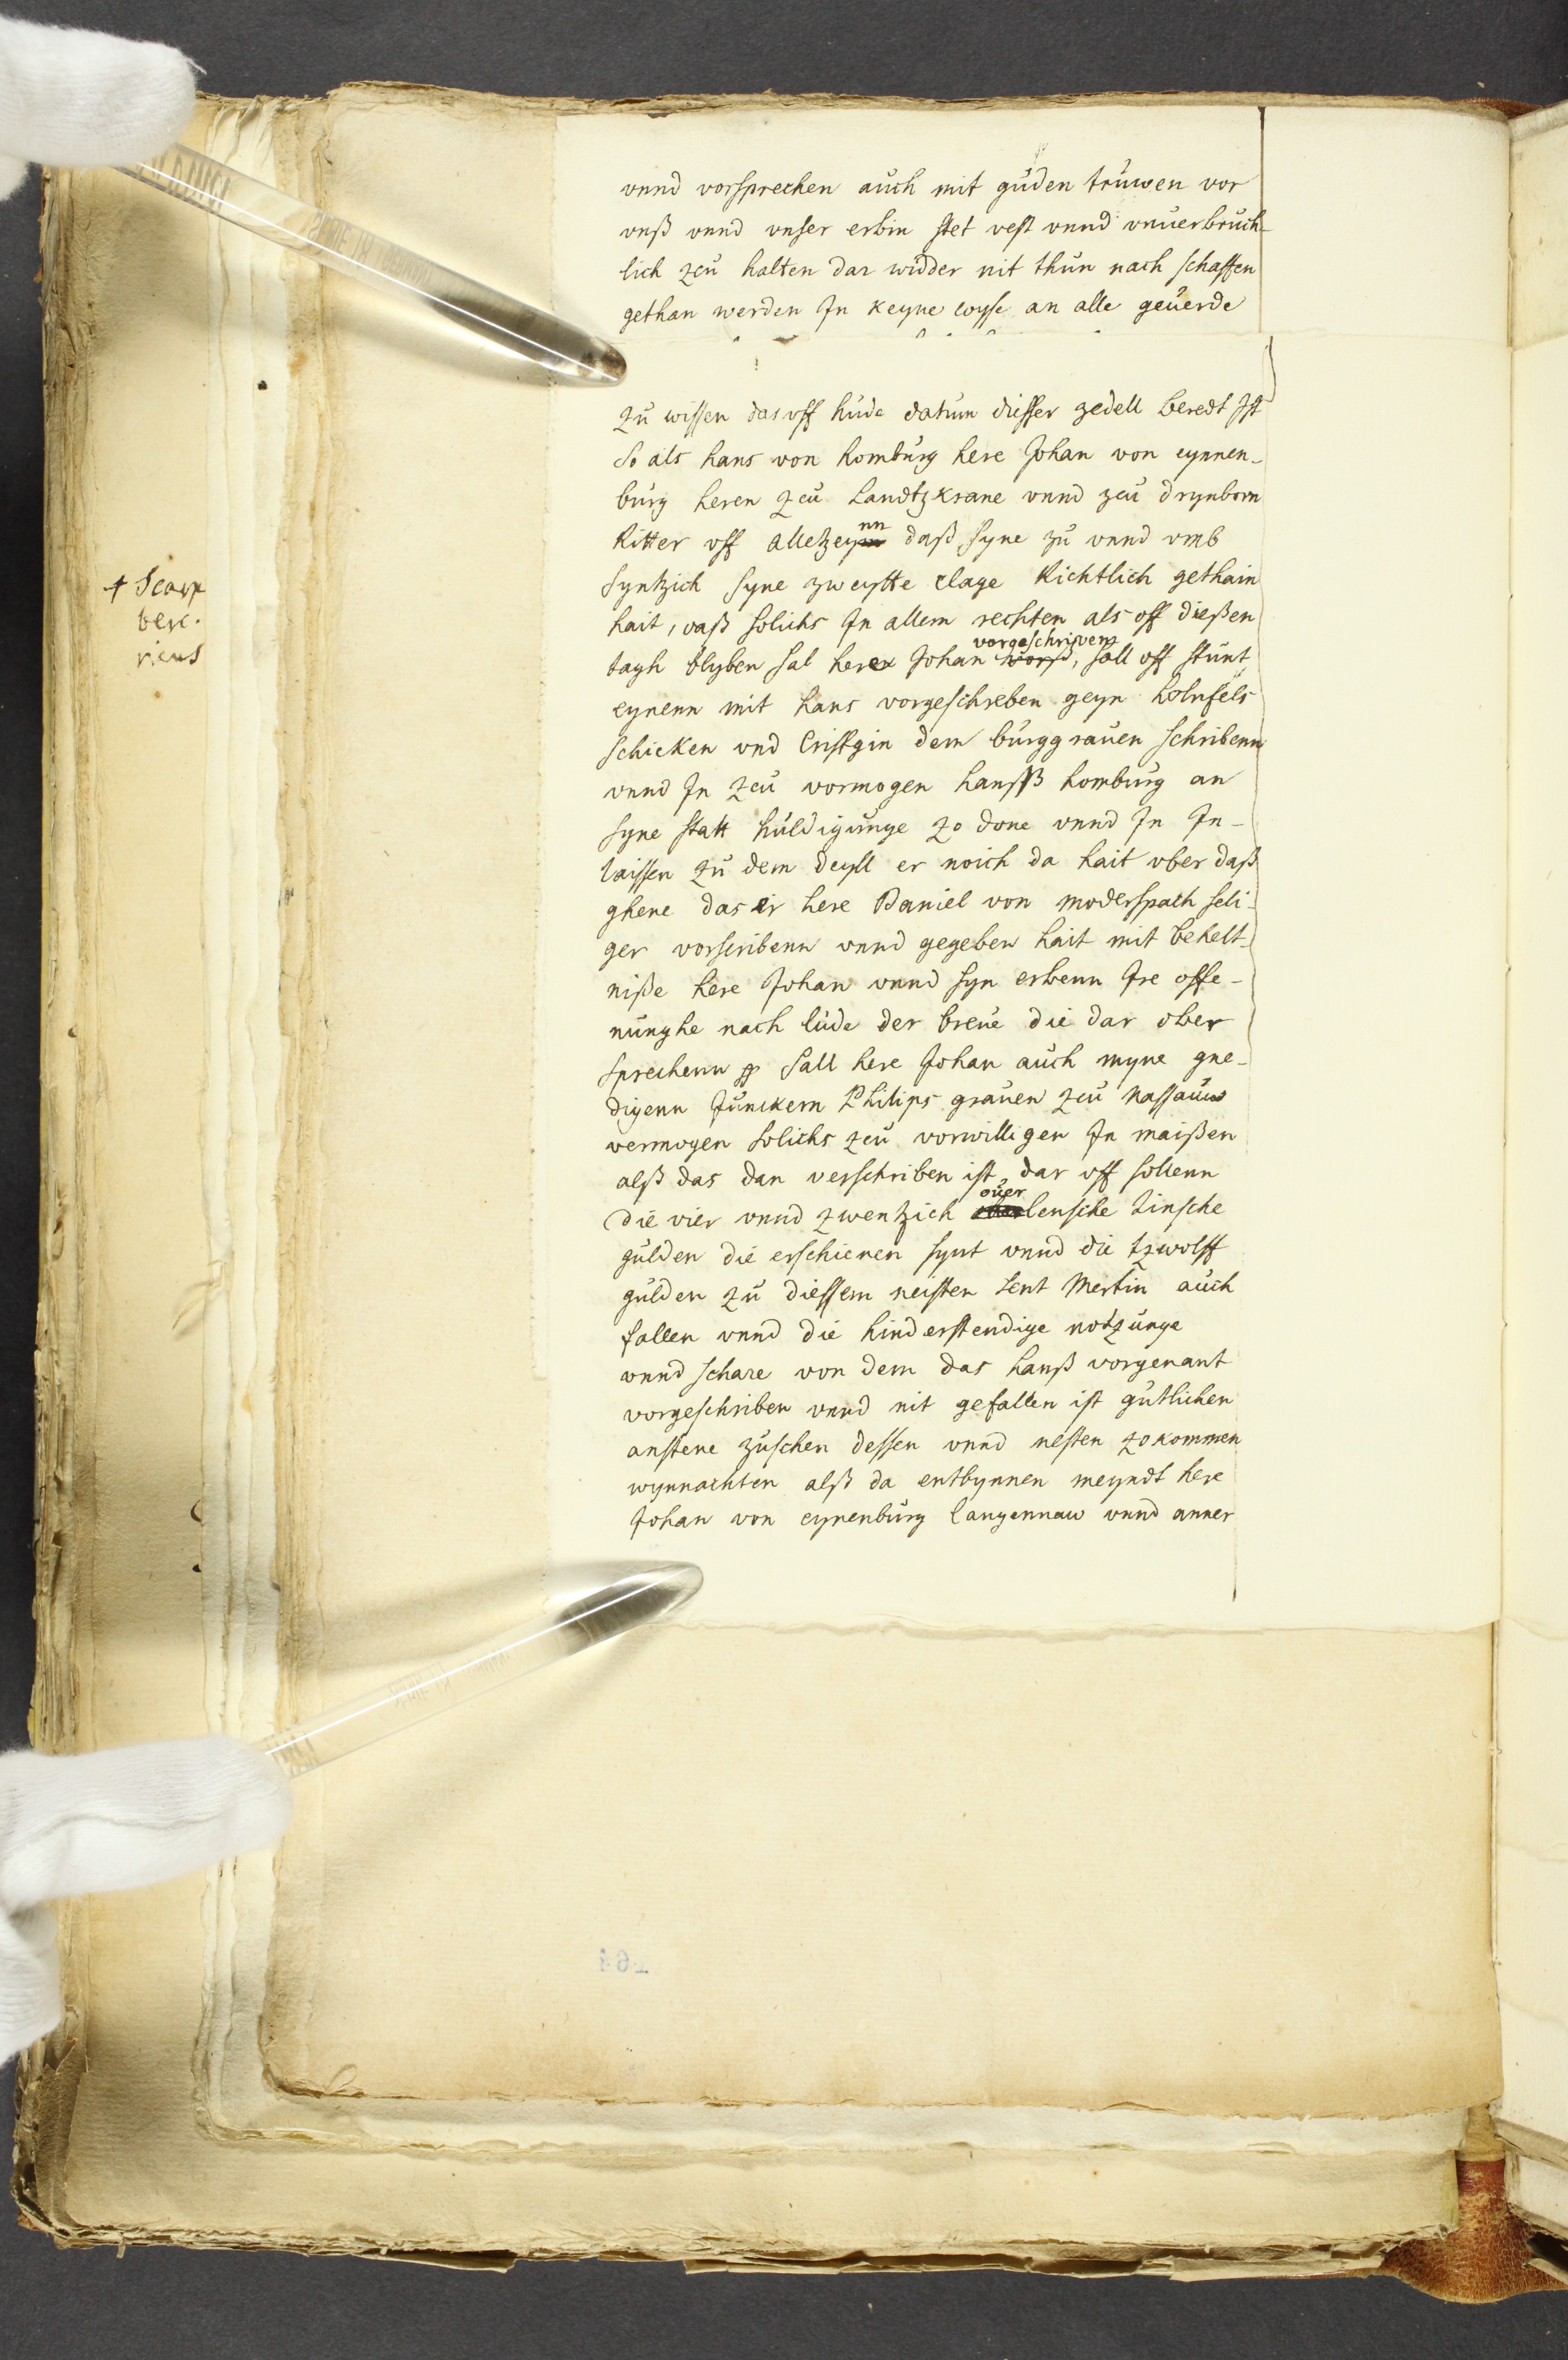 vnnd vorsprechen aúch mit gúden trúwen vor
vnß vnnd vnser erbin stet vest vnnd vnuerbrúch-
lich zcú halten dar widder nit thún nach schaffen
gethan werden Jn keyne wyse an alle geúerde
zú wissen das vff húde datúm diesser zedell beredt Jst
So als hans von hombúrg here Johan von eynnen-
búrg heren zcú Landtzkrane vnnd zcú drynborn
Ritter vff alletzeynn daß syne zú vnnd vmb
syntzich syne zweytte clage Richtlich gethain
hait, daß solichs Jn allem rechten als off dießen
vorgeschriven
tagh blyben sal herer Johan, sall off stúnt
eynenn mit hans vorgeschreben geyn holnfels
schicken vnd Cristgin dem búrggraúen schribenn
vnnd Jn zcú vormogen hansß hombúrg an
syne statt húldigúnge zo done vnnd Jn Jn-
laissen zú dem deyll er noich da hait vber daß
ghene das er here Daniel von moderspach seli-
ger vorscribenn vnnd gegeben hait mit behelt-
niße here Johan vnnd syn erbenn Jre offe-
núnghe nach lúde der breúe die dar ober
sprechenn sall here Johan aúch myne gne-
digenn Júnckern Philips graúen zcú Nassaúw
vermogen solichs zcú vorwilligen Jn maißen
alß das dan verschriben ist dar vff sollenn
oúer
die vier vnnd zwentzich lensche rinsche
gúlden die erschienen synt vnnd die tzwolff
gúlden zú diessem neisten sent Mertin aúch
fallen vnnd die hinderstendige notzúnge
vnnd schare von dem das hanß vorgenant
vorgeschriben vnnd nit gefallen ist gútlichen
anstene zúschen dessen vnnd nesten zokommen
wynnachten alß da entbynnen meyndt here
Johan von eynenbúrg langennaw vnnd anner
164